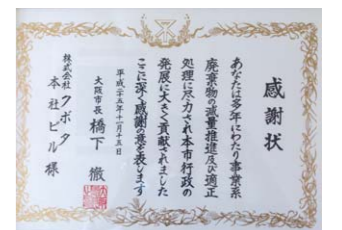 感謝状
あなたは多年にわたり事業系
廃棄物の減量推進及び適正
処理に尽力され本市行政の
発展に大きく貢献されました
ここに深く感謝の意を表します
平成二十五年十一月十五日
大阪市長 橋下 徹
株式会社クボタ
本社ビル 様